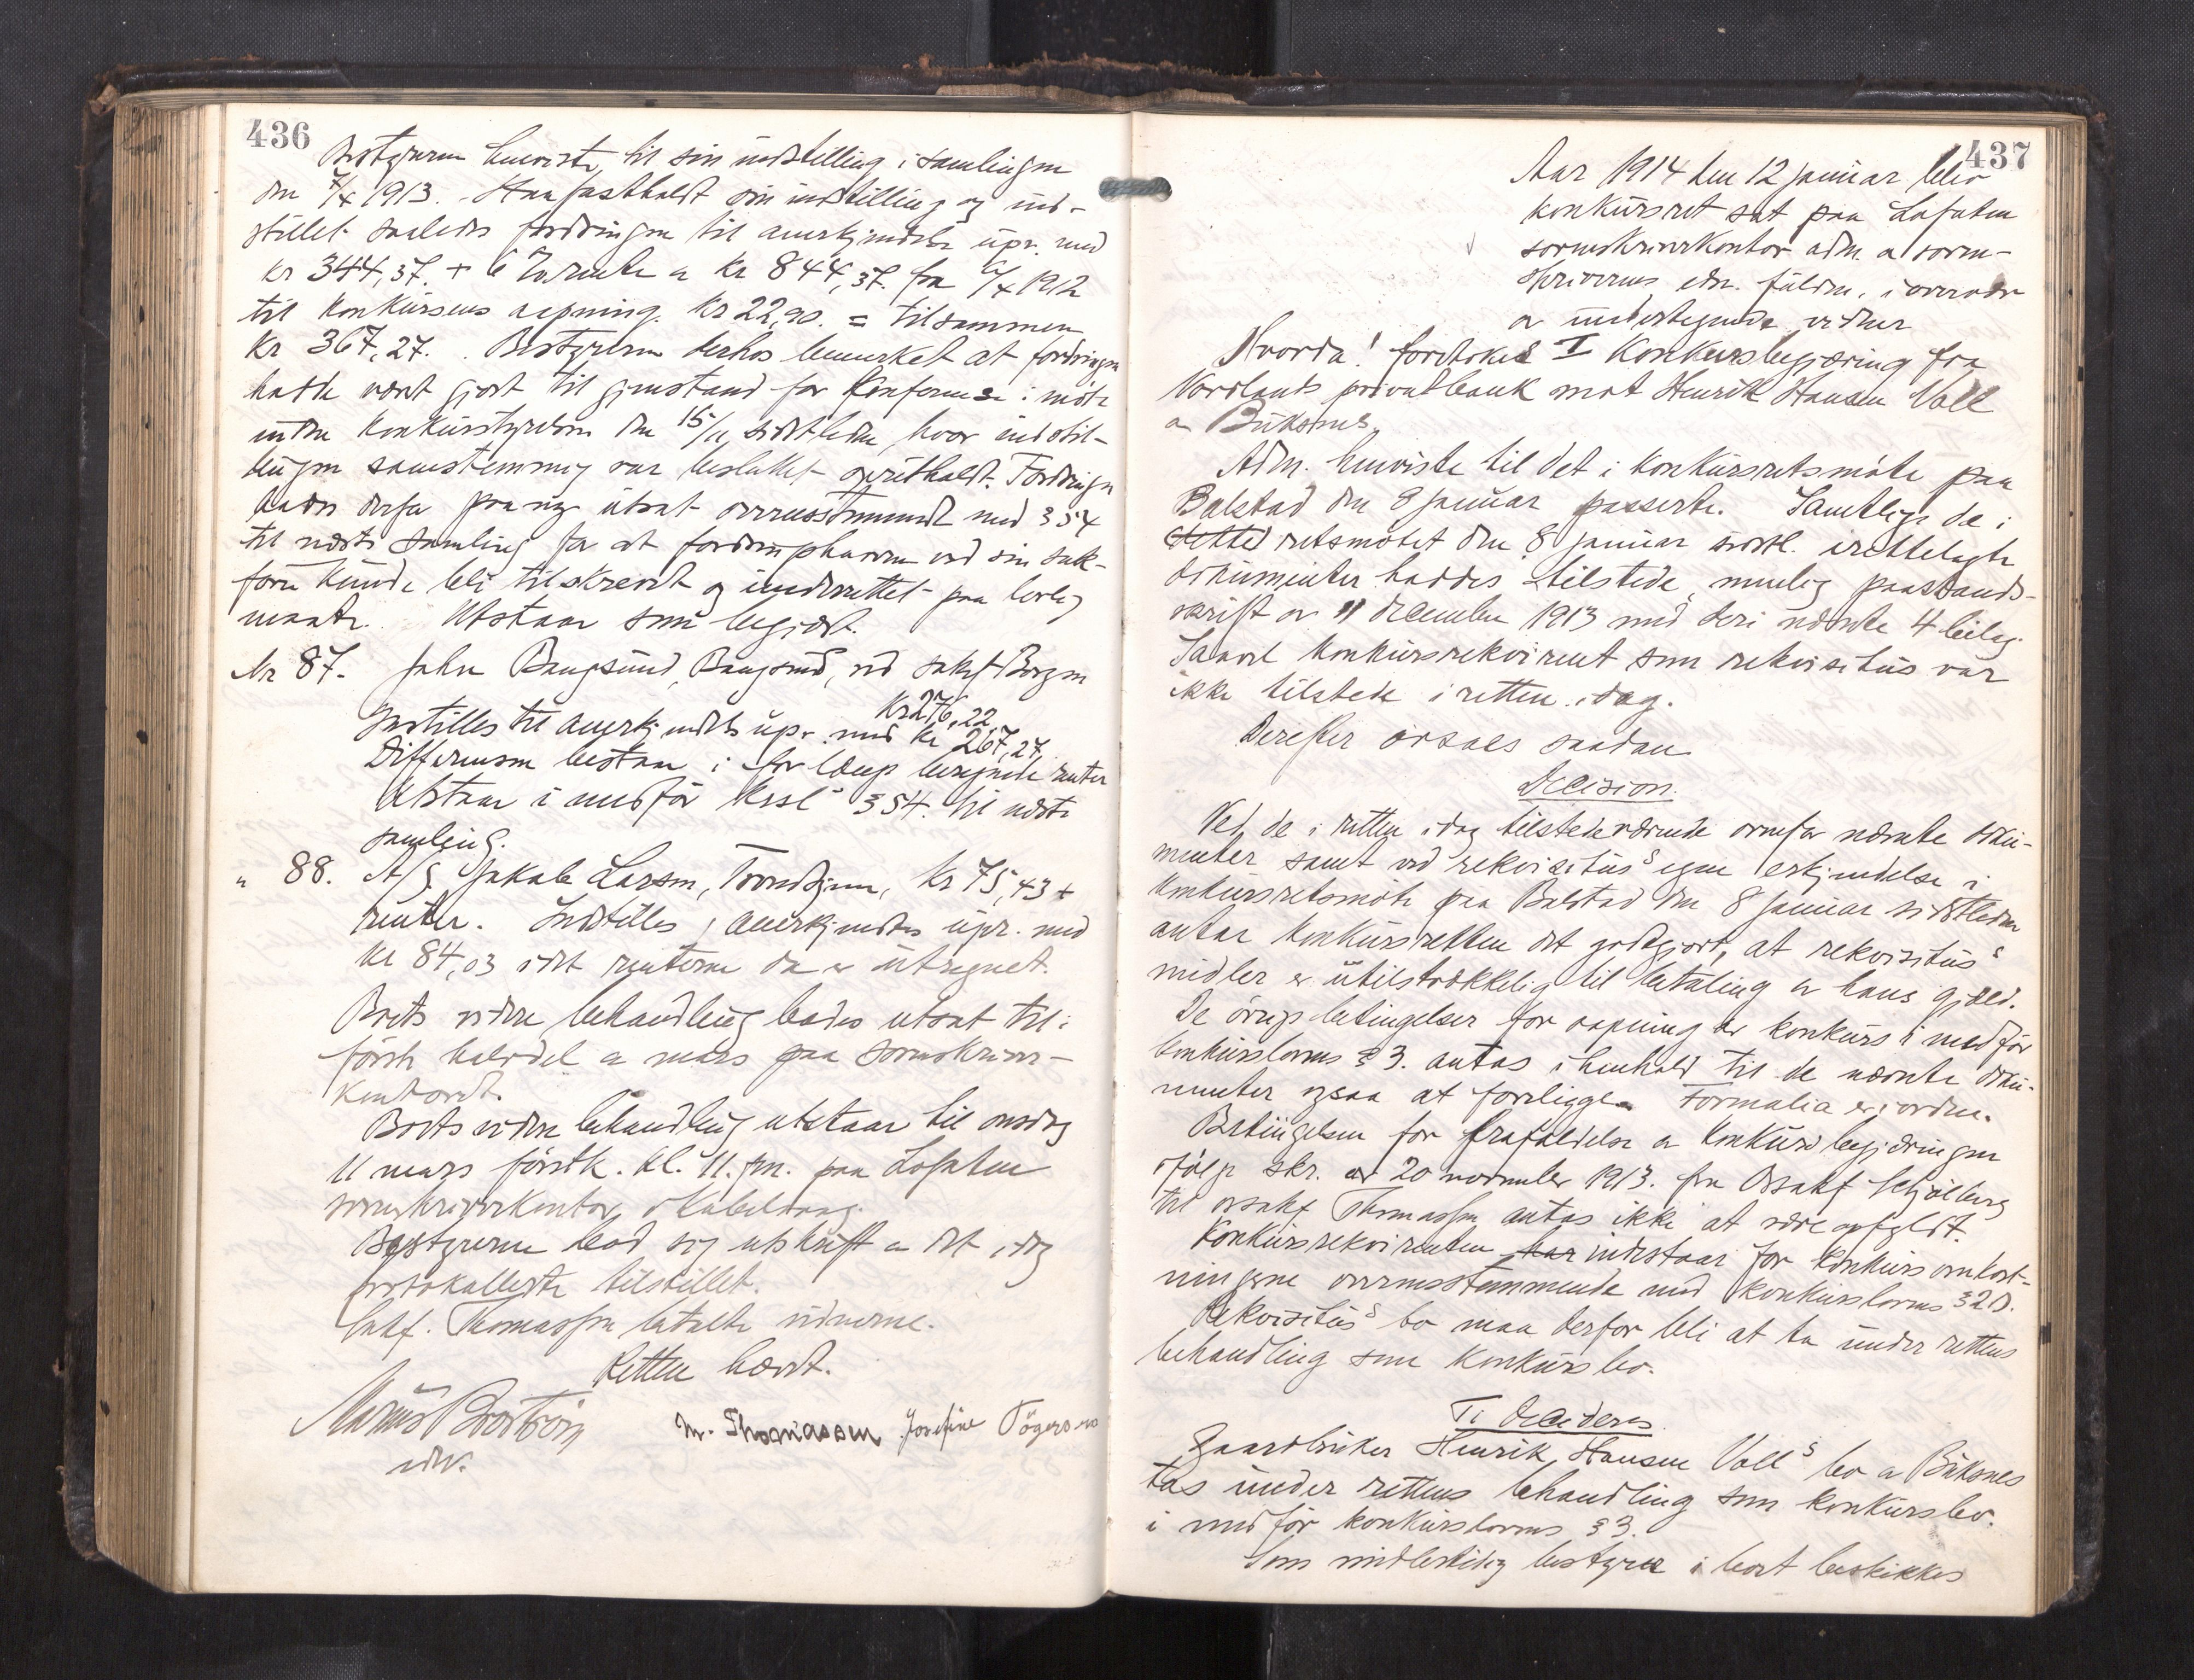 436
Bestyreren henviste til sin indstilling i samlingen
den 7/x 1913. Han fastholdt sin indstilling og ind-
stillet saaledes fordringen til anerkjendelse upr. med
kr 344,37. + 6 % rente a kr 844,37. fra /x 1912
til konkursens aapning. kr 22,90. = tilsammen
kr 367,27. Bestyreren derhos bemerket at fordringen
hadde været gjort til gjenstand for konferense i møte
inden konkursstyrelsen den 15/11 sidstleden, hvor indstil-
lingen samstemmig var besluttet opretholdt. Fordringen
derfor paa ny utsat overensstemmende med § 54
til næste samling for at fordringshaveren ved sin sak-
fører kunde bli tilskrevet og underrettet paa lovlig
maate. Utstaar som begjært.
Nr 87. John Bangsund, Bangsund, ved sakf. Borgen
kr 276,22
Indstilles til anerkjendelse upr. med kr 267,27,
Differensen bestaar i for længe beregnede renter
Utstaar i medfør kksl § 54. til næste
samling.
" 88. A/S Jakob Larsen, Trondhjem, kr 75,43 +
renter. Indstilles, anerkjendes upr. med
kr 84,03 idet renterne da er utregnet.
Boets videre behandling bades utsat til
første halvdel a mars paa sorenskriver-
kontoret.
Boets videre behandling utstaar til onsdag
11 mars førstk. kl. 11. fm. paa Lofoten
sorenskriverkontor, i Kabelvaag.
Bestyreren bad sig utskrift a det idag
protokollerte tilstillet.
Sakf. Thomassen betalte vidnerne.
Retten hævet.
M. Thomassen Josefine Tøgersen
edv.
437
Aar 1914 den 12 januar blev
konkursret sat paa Lofoten
sorenskriverkontor adm. a soren-
skriverens edv. fuldm. i overvær
a undertegnede vidner
Hvorda! foretokes I Konkursbegjæring fra
Nordlands privatbank mot Henrik Hansen Voll
a Buksnes.
Adm. henviste til det i konkursretsmøte paa
Balstad den 8 januar passerte. Samtlige de i
dette retsmøtet den 8 januar sidstl. irettelagte
dokumenter haddes tilstede, nemlig paastands-
skrift av 11 december 1913 med deri nævnte 4 bilag.
Saavel konkursrekvirent som rekvisitus var
ikke tilstede i retten idag.
Derefter avsaes saadan
Decision.
Ved de i retten idag tilstedeværende ovenfor nævnte doku-
menter samt ved rekvisitus's egen erkjendelse i
konkursretsmøte paa Balstad den 8 januar sidstleden
antar konkursretten det godtgjort, at rekvisitus's
midler er utilstrækkelig til betaling av hans gjæld.
De øvrige betingelser for aapning av konkurs i medfør
konkurslovens § 3. antas i henhold til de nævnte doku-
menter ogsaa at foreligge. Formalia er i orden.
Betingelsen for frafaldelse a konkursbegjæringen
ifølge skr. av 20 november 1913. fra Ossakf Schjølberg
til ossakf Thomassen antas ikke at være opfyldt.
Konkursrekvirenten har indestaar for konkursomkost-
ningerne overensstemmende med konkurslovens § 20.
Rekvisitus's bo maa derfor bli at ta under rettens
behandling som konkursbo.
Ti decideres
Gaardbruker Henrik Hansen Voll's bo a Buksnes
tas under rettens behandling som konkursbo.
i medfør konkurslovens § 3.
Som midlertidig bestyrer i boet beskikkes